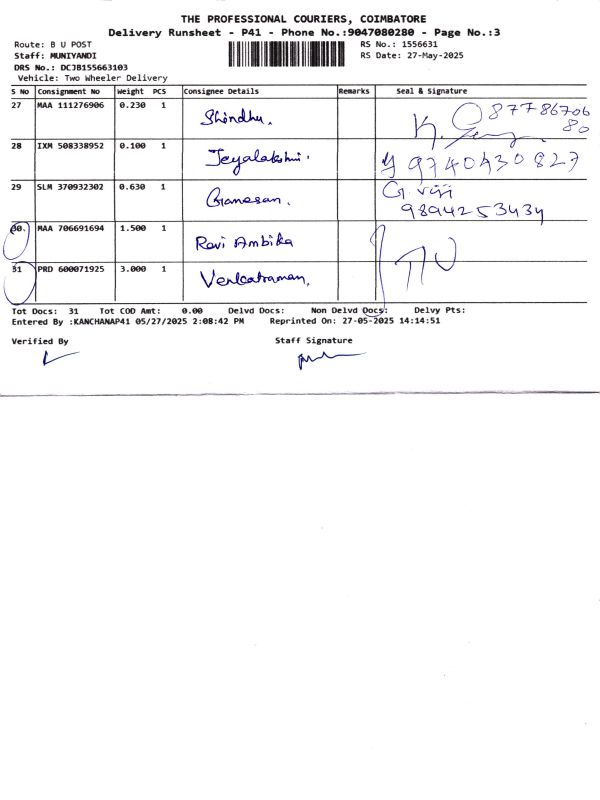 THE PROFESSIONAL COURIERS, COIMBATORE
Delivery Runsheet - P41 - Phone No.:9047080280 - Page No.:3
Route: B U POST
RS No.: 1556631
Staff: MUNIYANDI
RS Date: 27-May-2025
DRS No.: DCJB155663103
Vehicle: Two Wheeler Delivery
S No Consignment No Weight PCS Consignee Details Remarks Seal & Signature
27 MAA 111276906 0.230 1 Shindhu. K. 8778670680
28 IXM 508338952 0.100 1 Jeyalakshmi. 9740430827
29 SLM 370932302 0.630 1 Ganesan. G. viji 9894253434
30. MAA 706691694 1.500 1 Ravi Ambika
31 PRD 600071925 3.000 1 Venkatraman,
Tot Docs: 31 Tot COD Amt: 0.00 Delvd Docs: Non Delvd Docs: Delvy Pts:
Entered By :KANCHANAP41 05/27/2025 2:08:42 PM Reprinted On: 27-05-2025 14:14:51
Verified By Staff Signature